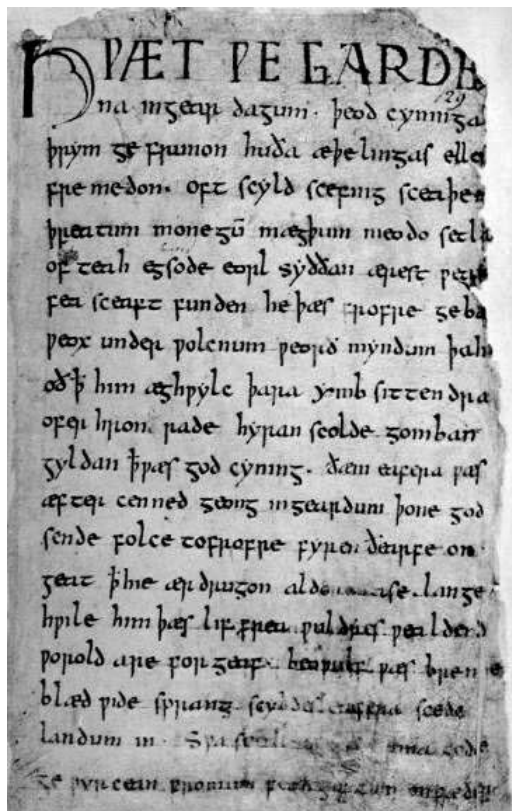 HǷÆT ǷE GARDE
129
na ingear dagum. þeod cyninga
þrym ge frunon huða æþelingas elle
fremedon. oft scyld scefing sceaþe
þreatum monegū mægþum meodo setla
of teah egsode eorl syððan ærest ƿear
fea sceaft funden he þæs frofre geba
ƿeox under ƿolcnum ƿeorð myndum þah
oð ꝥ him æghƿylc þara ymb sittendra
ofer hron rade hyran scolde gomban
gyldan ꝥ ƿæs god cyning. ðæm eafera ƿæs
æfter cenned geong ingeardum þone god
sende folce tofrofre fyren ðearfe on
geat ꝥ hie ær drugon aldor ase. lange
hƿile him þæs lif frea ƿuldres ƿealdend
ƿorold are for geaf. beoƿulf ƿæs breme
blæd ƿide sprang scyldes eafera scede
landum in. Sƿa sceal ma gode
ge ƿyrcean fromum feoh giftum on fæder